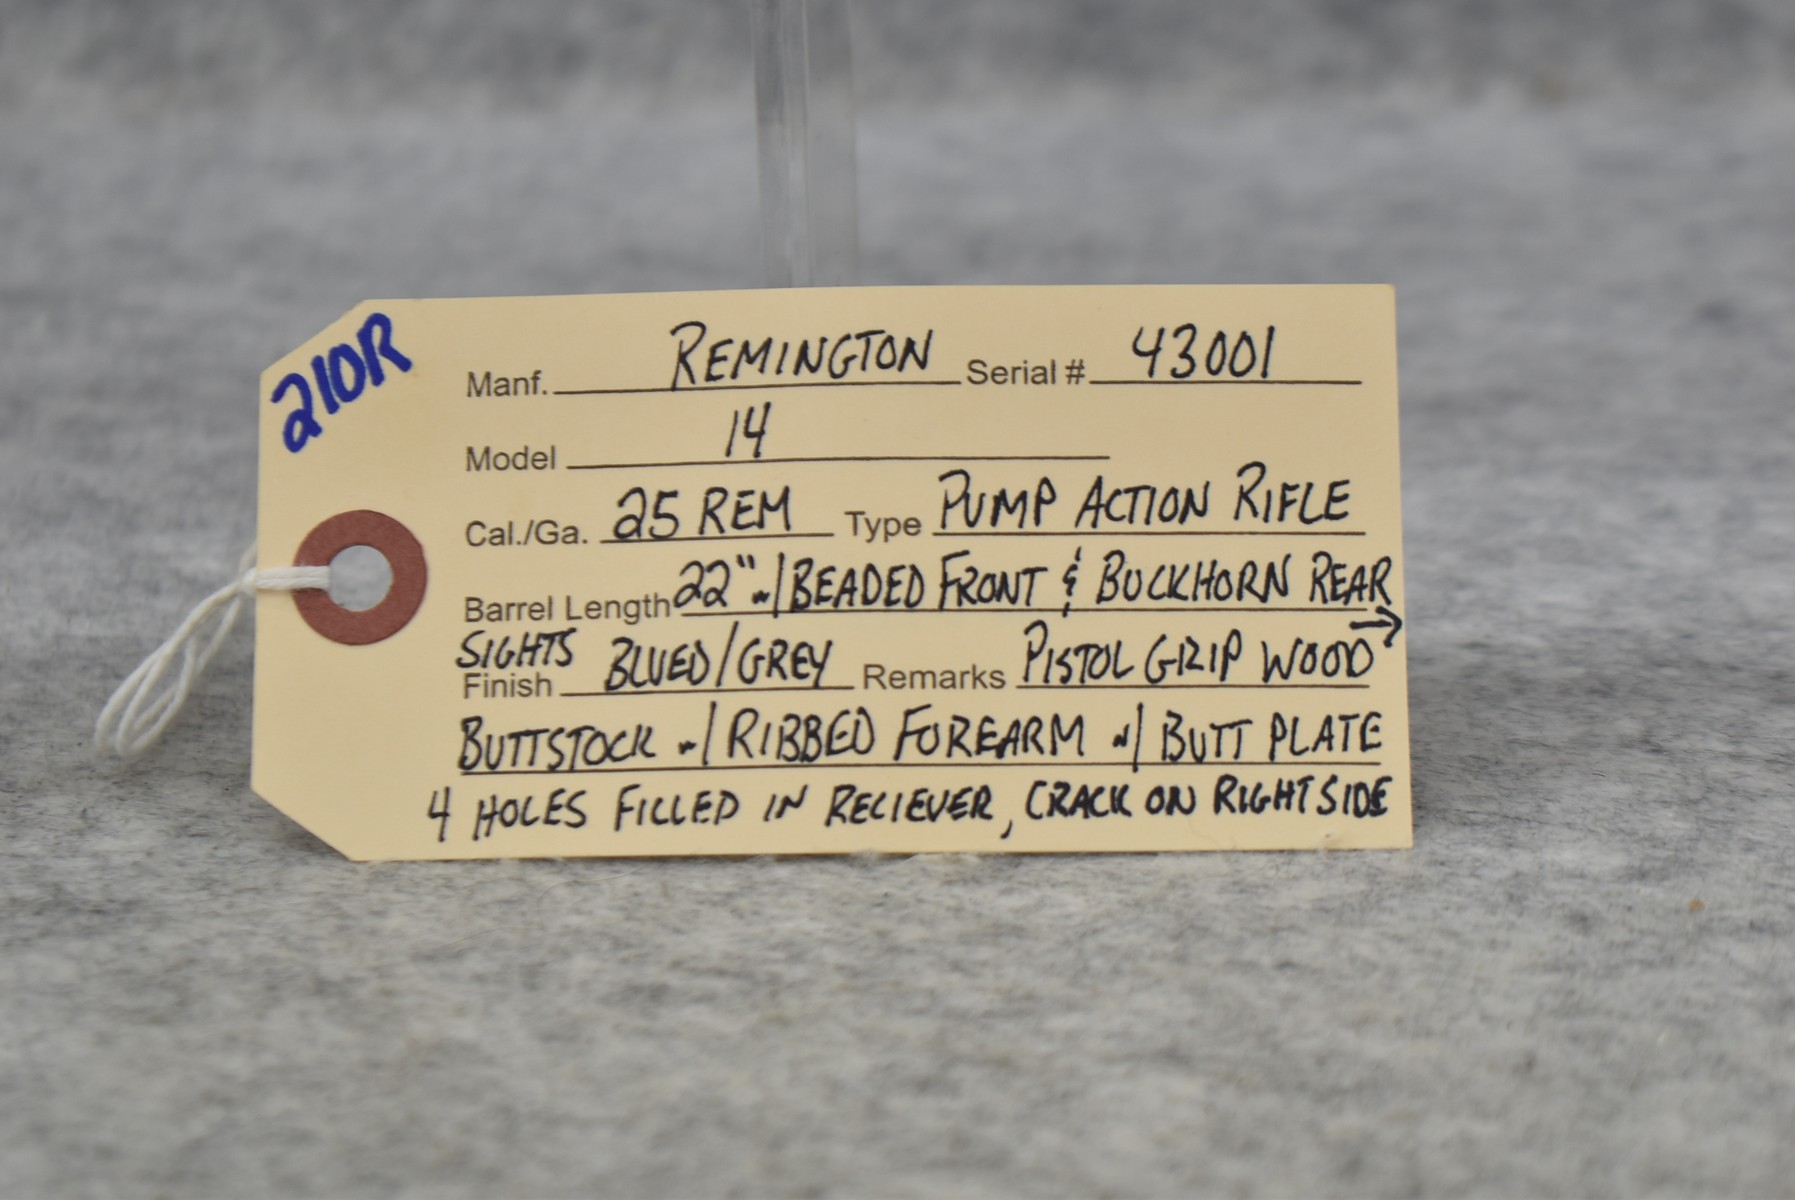 210R
Manf. REMINGTON Serial # 43001
Model 14
Cal./Ga. 25 REM Type PUMP ACTION RIFLE
Barrel Length 22" w/ BEADED FRONT & BUCKHORN REAR →
SIGHTS
Finish BLUED/GREY Remarks PISTOL GRIP WOOD
BUTTSTOCK w/ RIBBED FOREARM w/ BUTT PLATE
4 HOLES FILLED IN RECIEVER, CRACK ON RIGHT SIDE